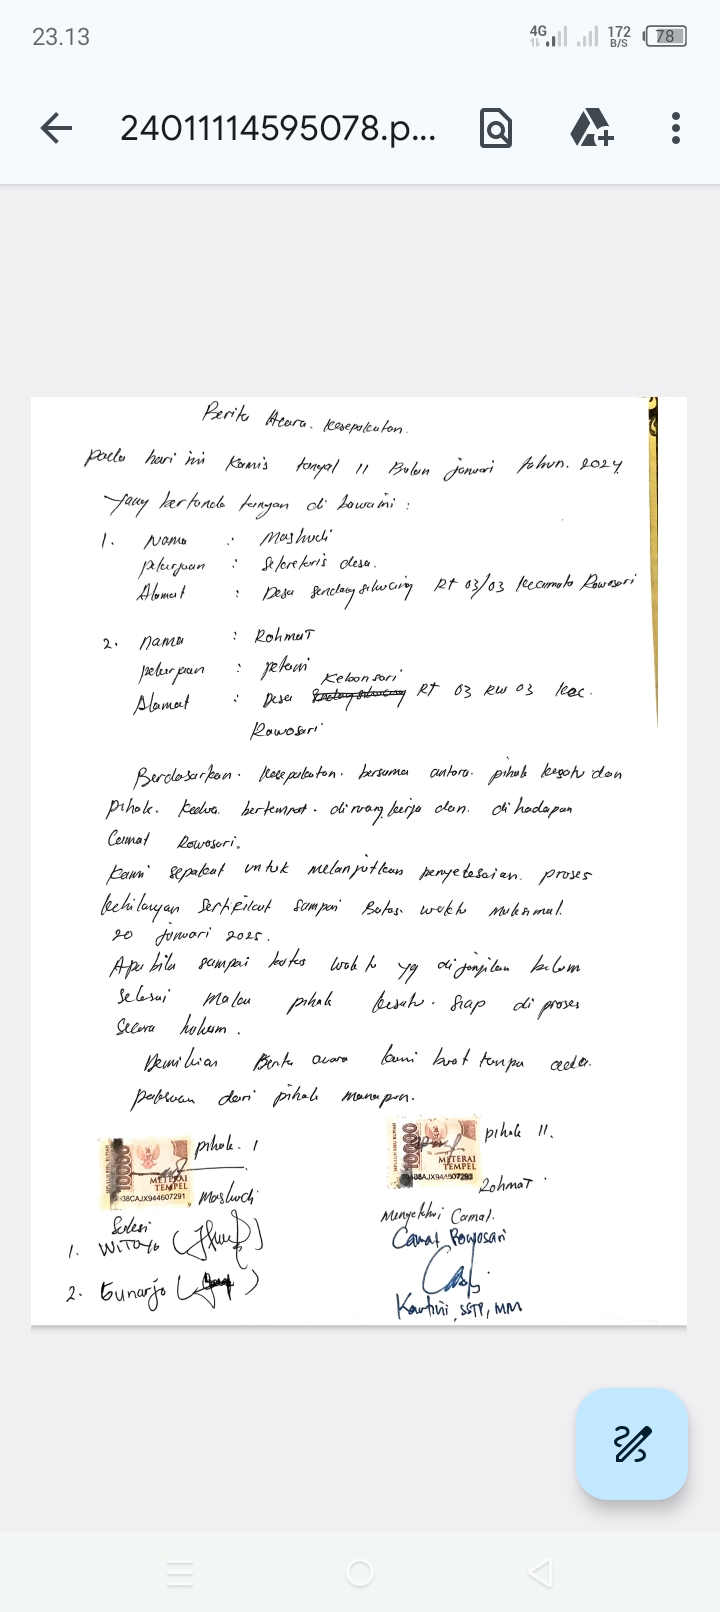 23.13
4G
172 B/S
78
24011114595078.p...
Berita Acara. Kesepakatan.
pada hari ini Kamis tanggal 11 Bulan januari tahun. 2024
yang bertanda tangan di bawa ini :
1. Nama : Mashudi
pekerjaan : Sekretaris desa.
Alamat : Desa Sendang sikucing Rt 03/03 Kecamata Rowosari
2. nama : Rohmat
pekerjaan : petani
Kebonsari
Alamat : Desa Sendang sikucing Rt 03 RW 03 Kec.
Rowosari
Berdasarkan. Kesepakatan. bersama antara. pihak kesatu dan
pihak. Kedua. bertempat. di ruang kerja dan. di hadapan
Camat Rowosari.
Kami sepakat untuk melanjutkan penyelesaian. proses
kehilangan Sertifikat Sampai Batas. waktu Maksimal.
20 januari 2025.
Apabila sampai batas waktu yg di janjikan belum
Selesai Maka pihak kesatu. siap di proses
Secara hukum.
Demikian Berita acara kami buat tanpa ada.
paksaan dari pihak manapun.
pihak. I
pihak II.
10000
METERAI
TEMPEL
10000
METERAI
TEMPEL
Mashudi
Rohmat
Saksi
Mengetahui Camat.
1. WITOYO
Camat Rowosari
2. Gunarjo
Kartini, SSTP, MM